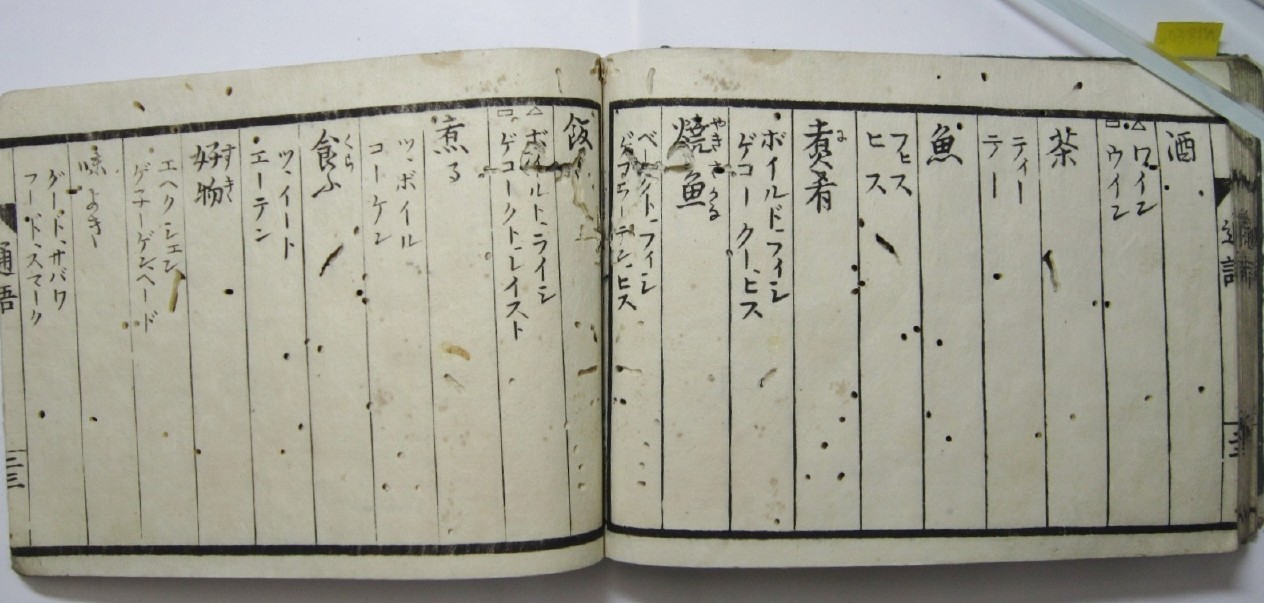 酒
△ワイン
□ウイン
茶
ティー
テー
魚
フヒス
ヒス
煮肴
に
ボイルドフィシ
ゲコークト、ヒス
焼魚
やきさかる
ベークト、フィシ
ヒス
飯
△ボイルト、ライシ
□ゲコークト、レイスト
煮る
ツ、ボイル
コーケン
食ふ
くら
ツ、イート
エーテン
好物
すき
エヘクシェン
ゲチーゲンヘード
味よき
グード、サバワ
フード、スマーク
通語
二三